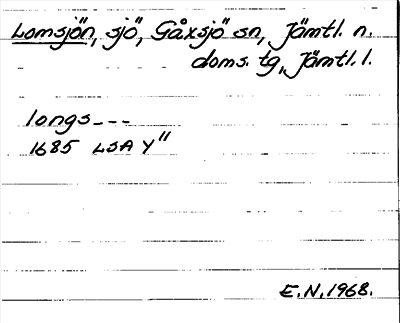 Lomsjön, sjö, Gåxsjö sn, Jämtl. n.
doms. tg, Jämtl. l.
longs---
1685 LSA Y"
E.N. 1968.